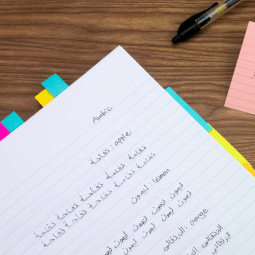 Arabic
تفاحة apple
تفاحة تفاحة تفاحة تفاحة
تفاحة تفاحة تفاحة تفاحة
تفاحة تفاحة تفاحة
ليمون lemon
ليمون ليمون ليمون ليمون
ليمون ليمون ليمون ليمون
البرتقالي orange
البرتقالي
البرتقالي